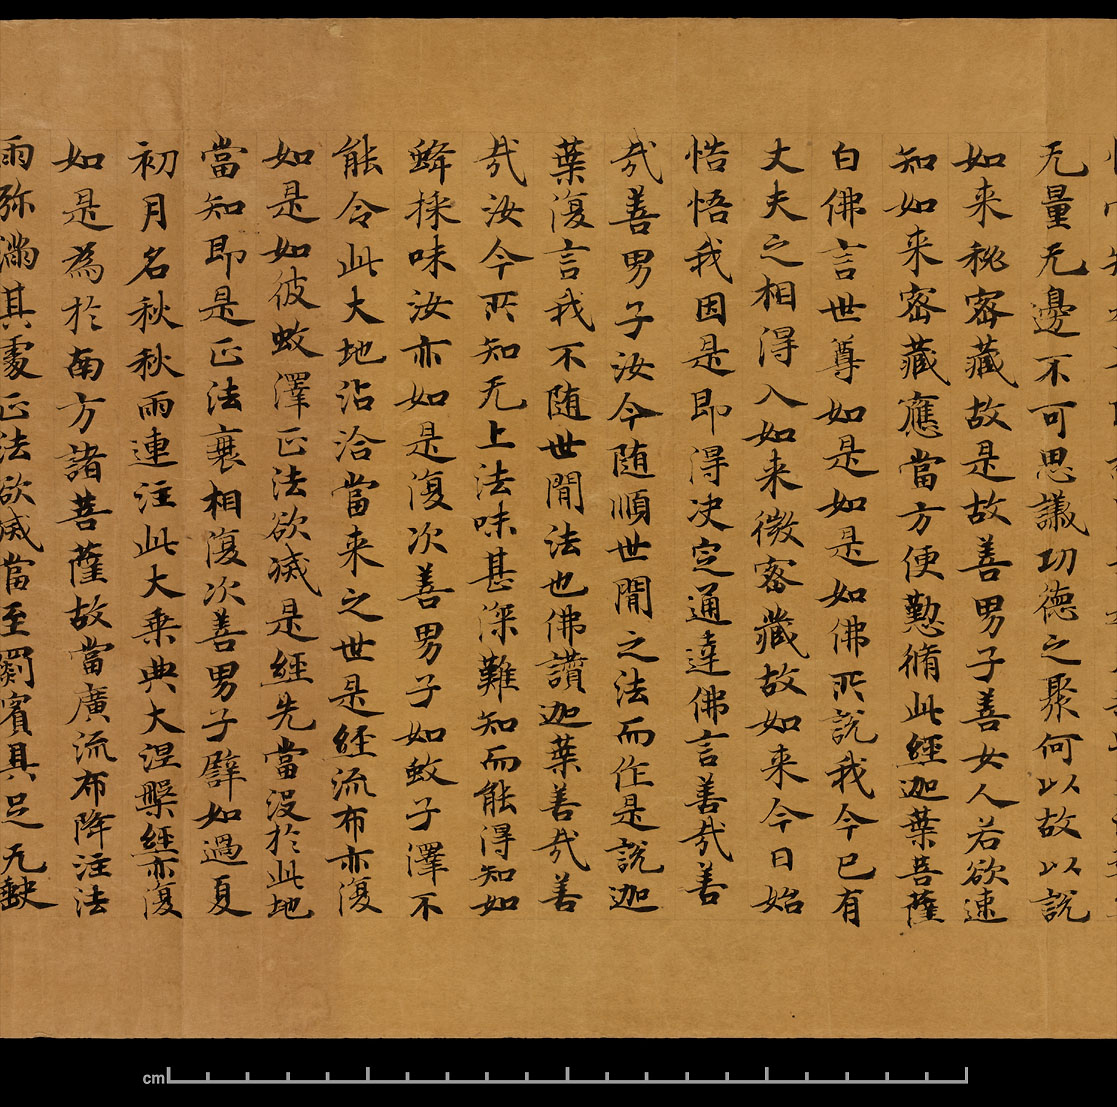 无量无邊不可思議功德之聚何以故以說
如来秘密藏故是故善男子善女人若欲速
知如来密藏應當方便懃脩此經迦葉菩薩
白佛言世尊如是如是如佛所說我今已有
丈夫之相得入如来微密藏故如来今日始
悎悟我因是即得决定通達佛言善哉善
哉善男子汝今随順世間之法而作是說迦
葉復言我不随世間法也佛讚迦葉善哉善
哉汝今所知无上法味甚深難知而能得知如
蜂採味汝亦如是復次善男子如蚊子澤不
能令此大地沾洽當来之世是經流布亦復
如是如彼蚊澤正法欲滅是經先當没於此地
當知即是正法衰相復次善男子譬如過夏
初月名秋秋雨連注此大乗典大涅槃經亦復
如是為於南方諸菩薩故當廣流布降注法
雨弥滿其處正法欲滅當至罽賓具足无缺
cm